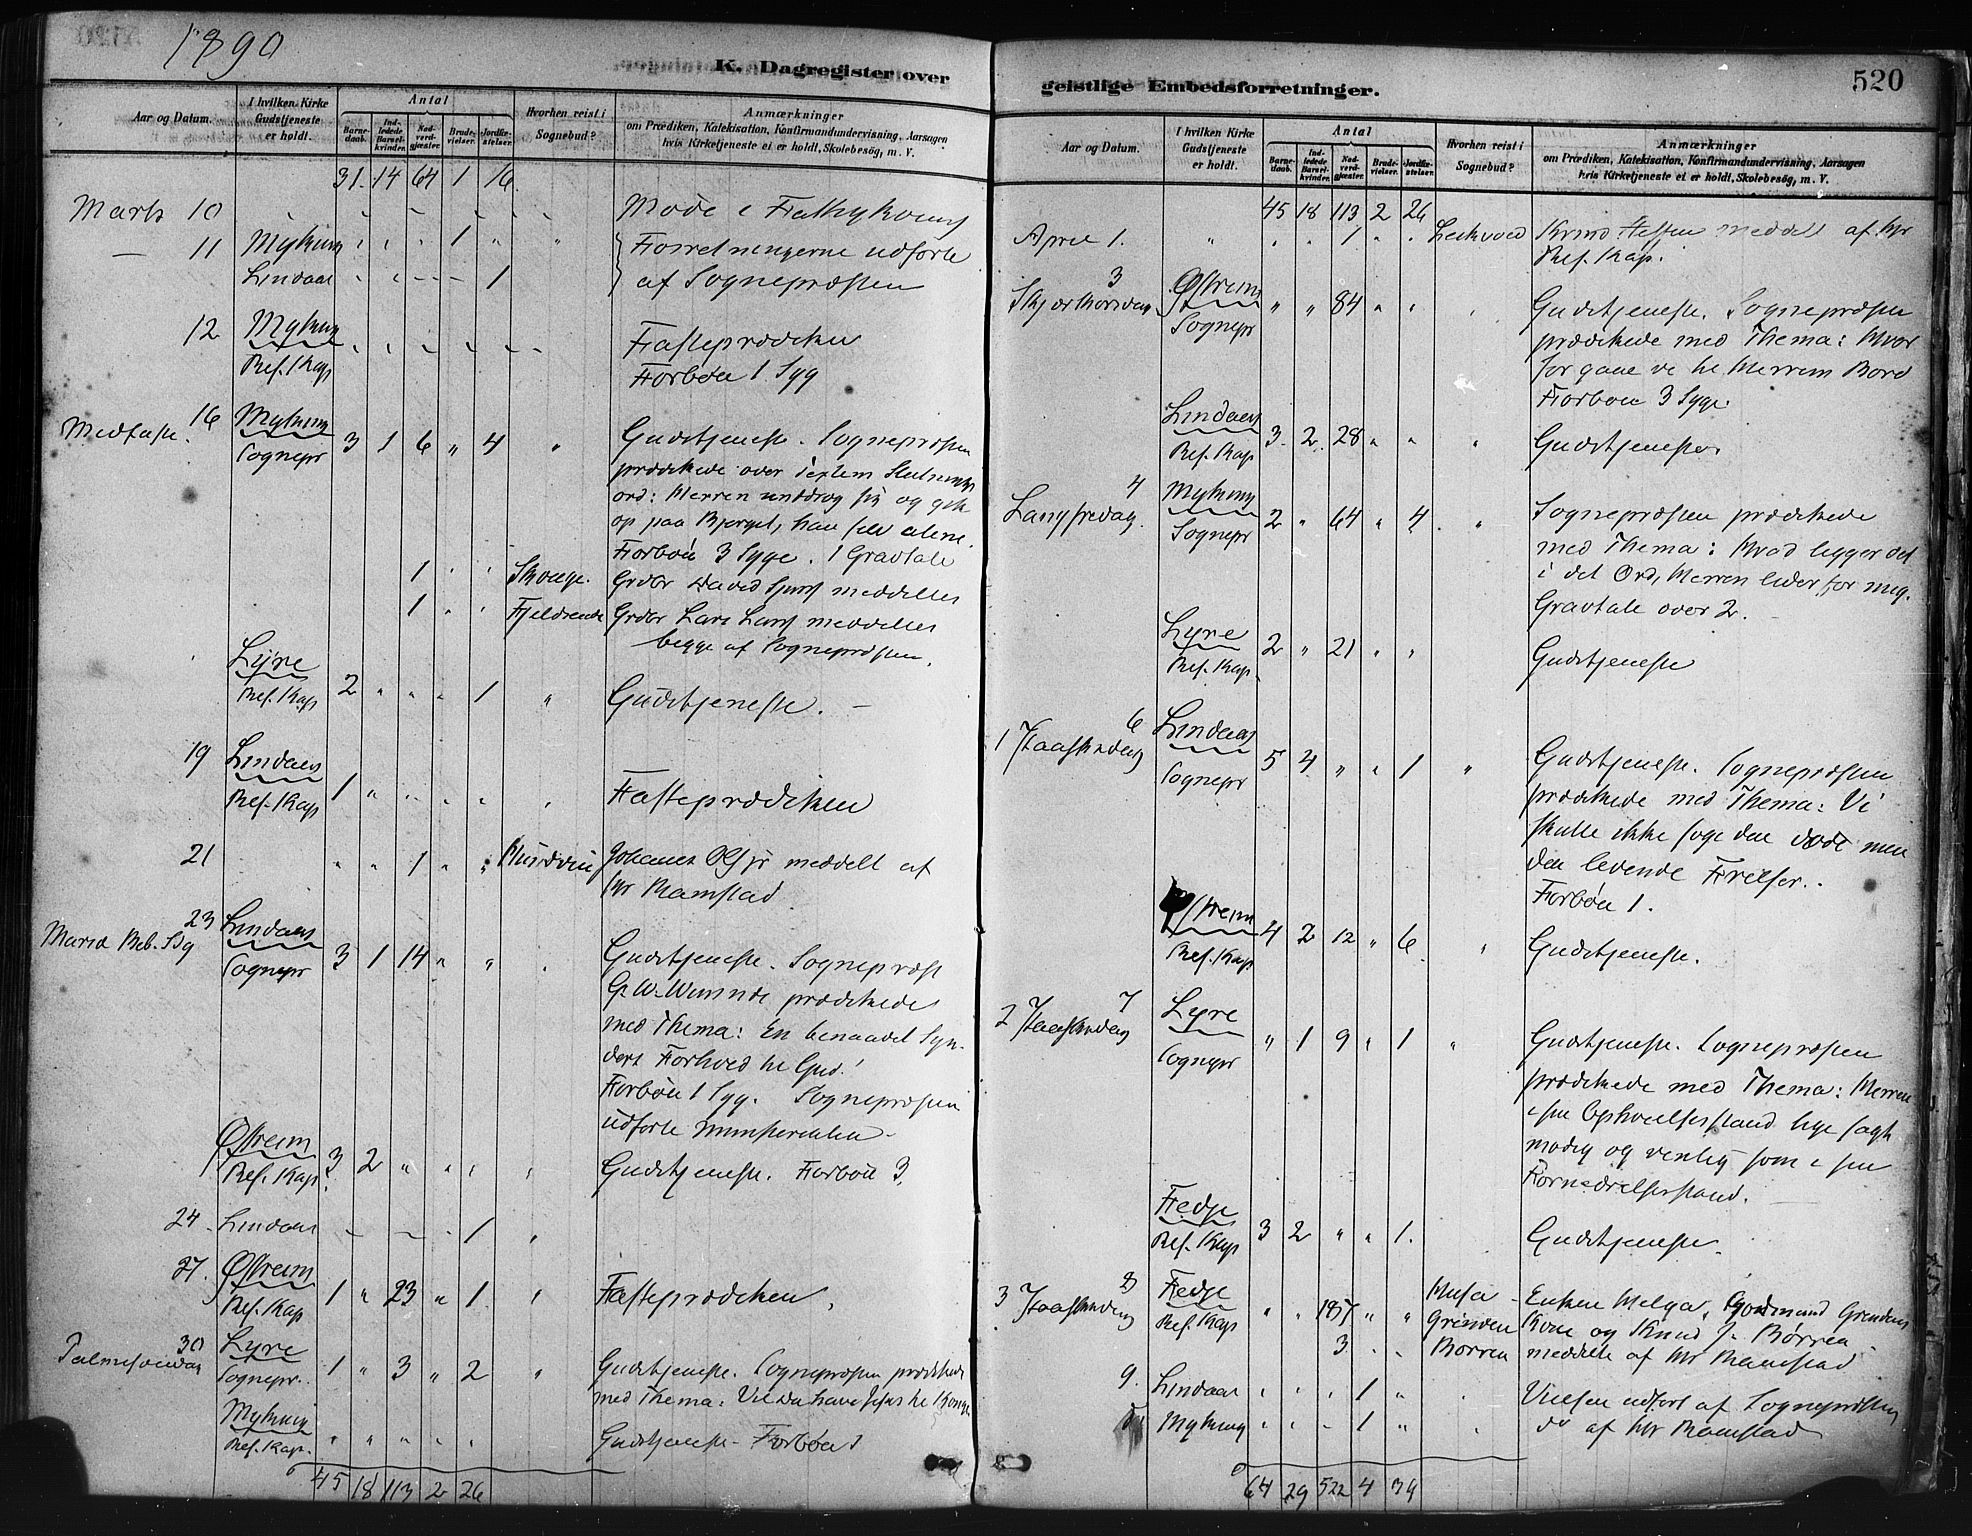 1890
K. Dagregister over
Aar og Datum.
I hvilken Kirke Gudstjeneste er holdt.
Antal
Barnedaab.
Indledede Barselkvinder.
Nadverdgjæster.
Brudevielser.
Jordfæstelser.
Hvorhen reist i Sognebud?
Anmærkninger
om Prædiken, Katekisation, Konfirmandundervisning, Aarsagen
hvis Kirketjeneste ei er holdt, Skolebesög, m. V.
31. 14 64 1 16
Marts 10 Møde i
— 11 Myking 1 " " Forretningerne udførte
Lindaas 1 af Sognepræsten
12 Myking Fasteprædiken
Res. Kap Forbøn 1 Syg
16 Myking
Midfaste. Sognepr 3 1 6 " 4 " Gudstjeneste. Sognepræsten
prædikede over Textens Slutnings
ord: Herren unddrog sig og gik
op paa Bjerget, han selv alene.
Forbøn 3 Syge. 1 Gravtale
1 " " Grdbr David meddeltes
1 " " Grdbr Lars Lars meddeltes
begge af Sognepræsten.
Lyre
Res. Kap 2 " " " 1 " Gudstjeneste. —
19 Lindaas
Res. Kap 1 " " " " " Fasteprædiken
21 " " 1 " " Johannes meddelt af
Hr Ramstad
23 Lindaas
Maria Beb. Dg Sognepr 3 1 14 " " " Gudstjeneste. Sogneprest
prædikede
med Thema: En benaadet Syn-
ders Forhold til Gud!
Forbøn 1 Syg. Sognepræsten
udførte
Østreim
Res. Kap. 3 2 " " " " Gudstjeneste. Forbøn 3.
24 Lindaas 1 "
27. Østreim
Res. Kap 1 " 23 " 1 " Fasteprædiken.
30 Lyre
Palmesøndag Sognepr. 1 " 3 " 2 " Gudstjeneste. Sognepræsten prædikede
med Thema: Vil Du have Jesus til Konge
Myking
Res. Kap. " " " " " Gudstjeneste - Forbøn 1
45 18 113 2 26
geistlige Embedsforretninger.
520
Aar og Datum.
I hvilken Kirke Gudstjeneste er holdt.
Antal
Barnedaab.
Indledede Barselkvinder.
Nadverdgjæster.
Brudevielser.
Jordfæstelser.
Hvorhen reist i Sognebud?
Anmærkninger
om Prædiken, Katekisation, Konfirmandundervisning, Aarsagen
hvis Kirketjeneste ei er holdt, Skolebesög, m. V.
45 18 113 2 26
April 1. " " " 1 " " meddelt af Hr
Res. Kap.
3 Østreim
Skjærthorsdag Sognepr " " 84 " " " Gudstjeneste. Sognepræsten
prædikede med Thema: Hvor
for gaae vi til Herrens Bord
Forbøn 3 Syge.
Lindaas
Res. Kap 3 2 28 " " " Gudstjeneste.
4 Myking
Langfredag. Sognepr 2 " 64 " 4 " Sognepræsten prædikede
med Thema: Hvad ligger det
i det Ord, Herren lider for mig.
Gravtale over 2.
Lyre
Res. Kap. 2 " 21 " " Gudstjeneste
6 Lindaas
1 Paaskedag Sognepr 5 4 " " 1 " Gudstjeneste. Sognepræsten
prædikede med Thema: Vi
skulle ikke søge den døde men
den levende Frelser.
Forbøn 1.
Østreim
Res. Kap 4 2 12 " 6 " Gudstjeneste.
7 Lyre
2 Paaskedag Sognepr " 1 9 " 1 " Gudstjeneste. Sognepræsten
prædikede med Thema: Herren
i sin Ophøielsesstand lige sagt
modig og venlig som i sin
Fornedrelsesstand.
Fedje
Res. Kap 3 2 " " 1. Gudstjeneste.
8 Fedje
3 Paaskedag Res. Kap " " 187 " " Husa - Enken Helga, Grinden
Grinden Kone og Knud J. Børren
3 " " Borren meddelte af Hr Ramstad
9. Lindaas " " " 1 " " Vielsen udført af Sognepræsten
d. Myking " " " 1 " " do af Hr Ramstad
64 29 522 4 39